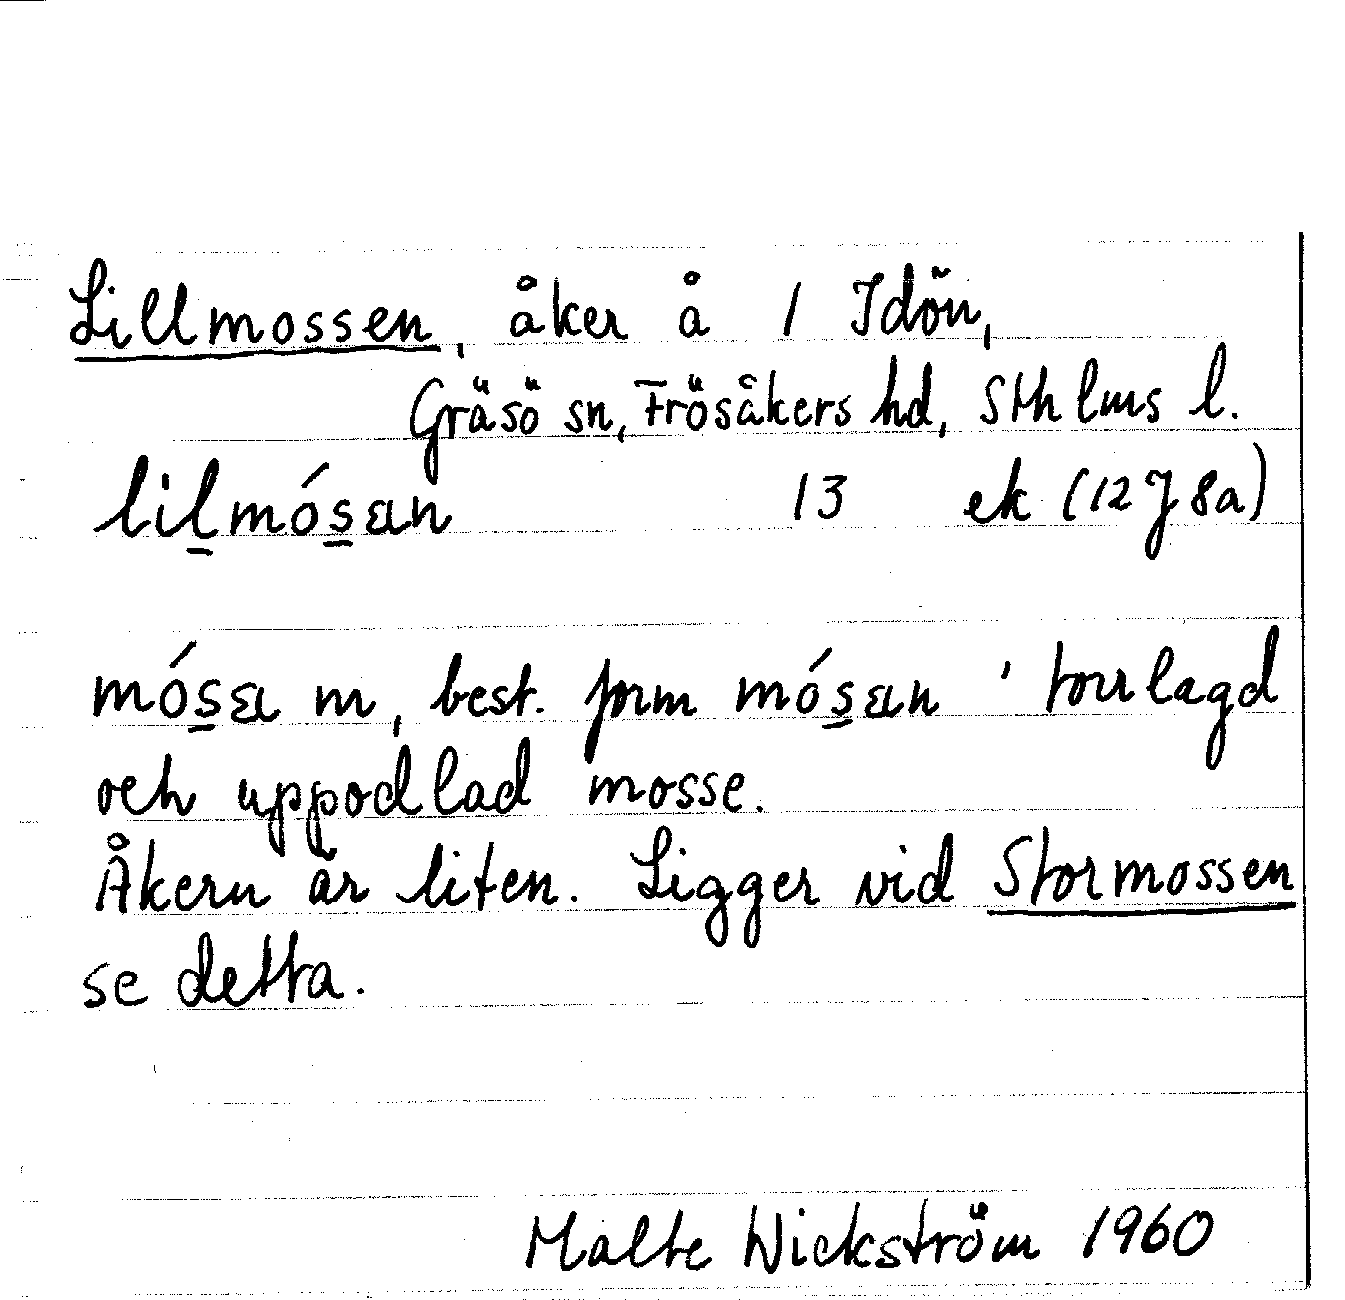 Lillmossen, åker å 1 Idön,
Gräsö sn, Frösåkers hd, Sthlms l.
lil̠mós̠ɛn 13 ek (12J8a)
mós̠ɛ m, best. form mós̠ɛn ' torrlagd
och uppodlad mosse.
Åkern är liten. Ligger vid Stormossen
se detta.
Malte Wickström 1960